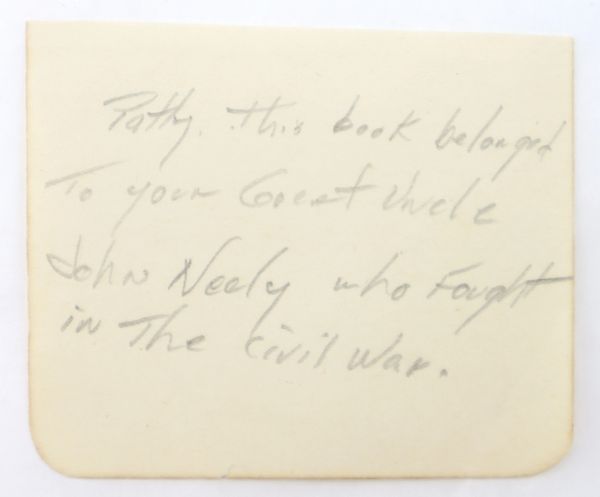 Patty. This book belonged
To your Great Uncle
John Neely who Fought
in The Civil War.